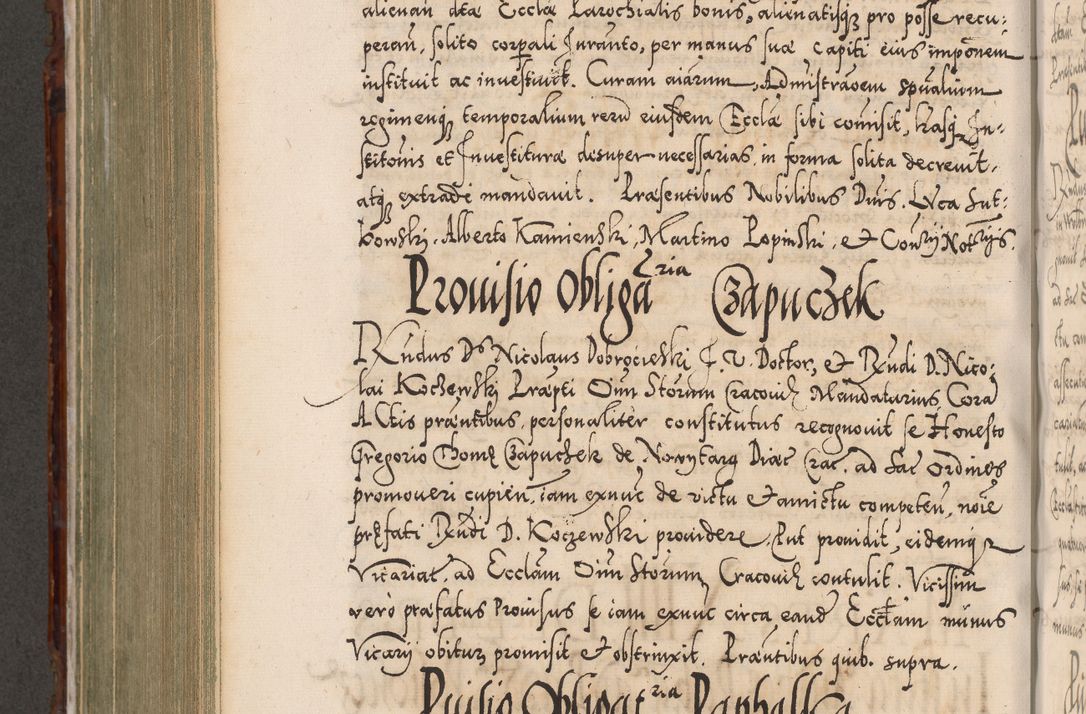 alienan dctæ Ecclæ Parochialis bonis, alienatisq3 pro posse recu:
peran, solito corporali Juranto, per manus suæ capiti eius imponem
instituit ac investivit. Curam aiarum, Admistraoem spualium
regimenq3 temporalium reru eiusdem Ecclæ sibi comisit, lrasq3 In:
stitonis et Investituræ desuper necessarias, in forma solita decrevit,
atq3 extradi mandavit. Præsentibus Nobilibus Dnis. Lvca Sut:
kowski, Alberto Kamienski, Martino Lopinski, et
Provisio Obligaria Czapuczek
RXndus Ds Nicolaus Dobrocieski J. V. Doctor, et Rxndi D. Nico:
lai Koczewski Præpti Oim Storum Cracoviæ Mandatarius, Cora
Actis præntibus, personaliter constitutus recognovit se Honesto
Gregorio Thomæ Czapuczek de Nowytarg Diæc Crac. ad Sac Ordines
promoveri cupien, iam exnuc de victu et amictu competen, noie
præfati Rxndi D. Koczewski providere, Put providit, eidemq3
Vicariat. ad Ecclam Oim Storum Cracoviæ contulit. Vicissim
vero præfatus Provisus se iam exnuc circa eand Ecclam munus
Vicarij obitur promisit et obstrinxit. Præntibus quib. supra.
Obligat ria